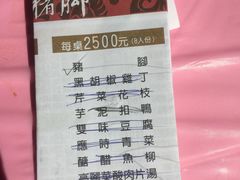 豬腳
每桌2500元(8人份)
豬腳
黑胡椒雞丁
芹菜花枝
芋泥扣鴨
雙味豆腐
應時青菜
醋魚柳
高麗菜酸肉片湯